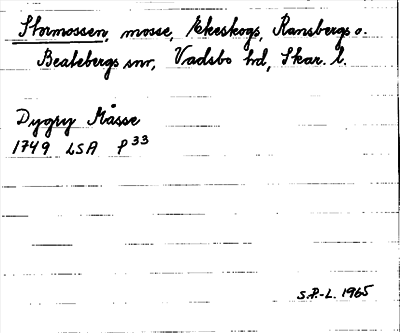 Stormossen, mosse, Ekeskogs, Ransbergs o.
Beatebergs snr, Vadsbo hd, Skar. l.
Dygry Måsse
1749 LSA P 33
S.P.-L. 1965